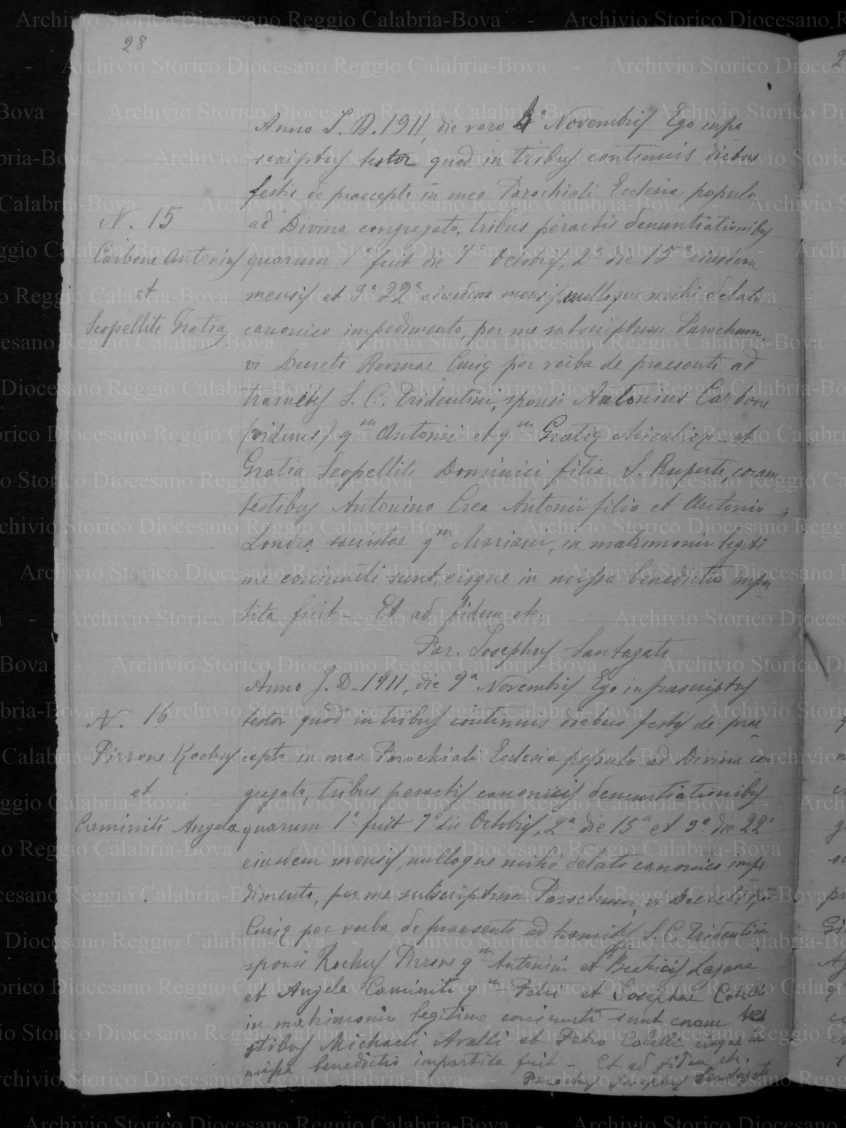 28
Anno J. D. 1911, die vero 4ª Novembris Ego infra
scriptus testor quod in tribus continuis diebus
festis de praecepto in mea Parochiali Ecclesia populo
N. 15
ad Divina congregato, tribus peractis denuntiationibus
Carbone Antonius
quarum 1ª fuit die 1ª Octobris, 2ª die 15ª eiusdem
et
mensis et 3ª 22ª eiusdem mensis, nulloque mihi delato
Scopelliti Gratia
canonico impedimento, per me subscriptum Parochum,
vi Decreti Revmae Curię per verba de praesenti ad
tramites S. C. Tridentini, sponsi Antonius Carbone
(viduus) qm Antonii et qm Gratię et
Gratia Scopelliti Dominici filia S. Ruperti, coram
testibus Antonino Crea Antonii filio et Antonio
Londra qm Mariani, in matrimonium legiti
me coniuncti sunt, eisque in missa benedictio impar
tita fuit - Et ad fidem etc.
Par. Josephus Santagati
Anno J. D. 1911, die 9ª Novembris Ego infrascriptus
N. 16
testor quod in tribus continuis diebus festis de prae
Pirrone Rochus
cepto in mea Parochiali Ecclesia populo ad Divina con
et
gregato, tribus peractis canonicis denuntiationibus
Caminiti Angela
quarum 1ª fuit 1ª die Octobris, 2ª die 15ª et 3ª die 22ª
eiusdem mensis, nulloque mihi delato canonico impe
dimento, per me subscriptum Parochum, vi Decreti
Curię per verba de praesenti ad tramites S. C. Tridentini
sponsi Rochus Pirrone qm Antonini et Beatricis Lagana
et Angela Caminiti qm Felici et Josephae Cotelli
in matrimonium legitime coniuncti sunt coram tes
stibus Michaeli Aralli et Petro Cotelli eisque in
missa benedictio impartita fuit - Et ad fidem etc.
Parochus Josephus Santagati
Archivio Storico Diocesano Reggio Calabria-Bova